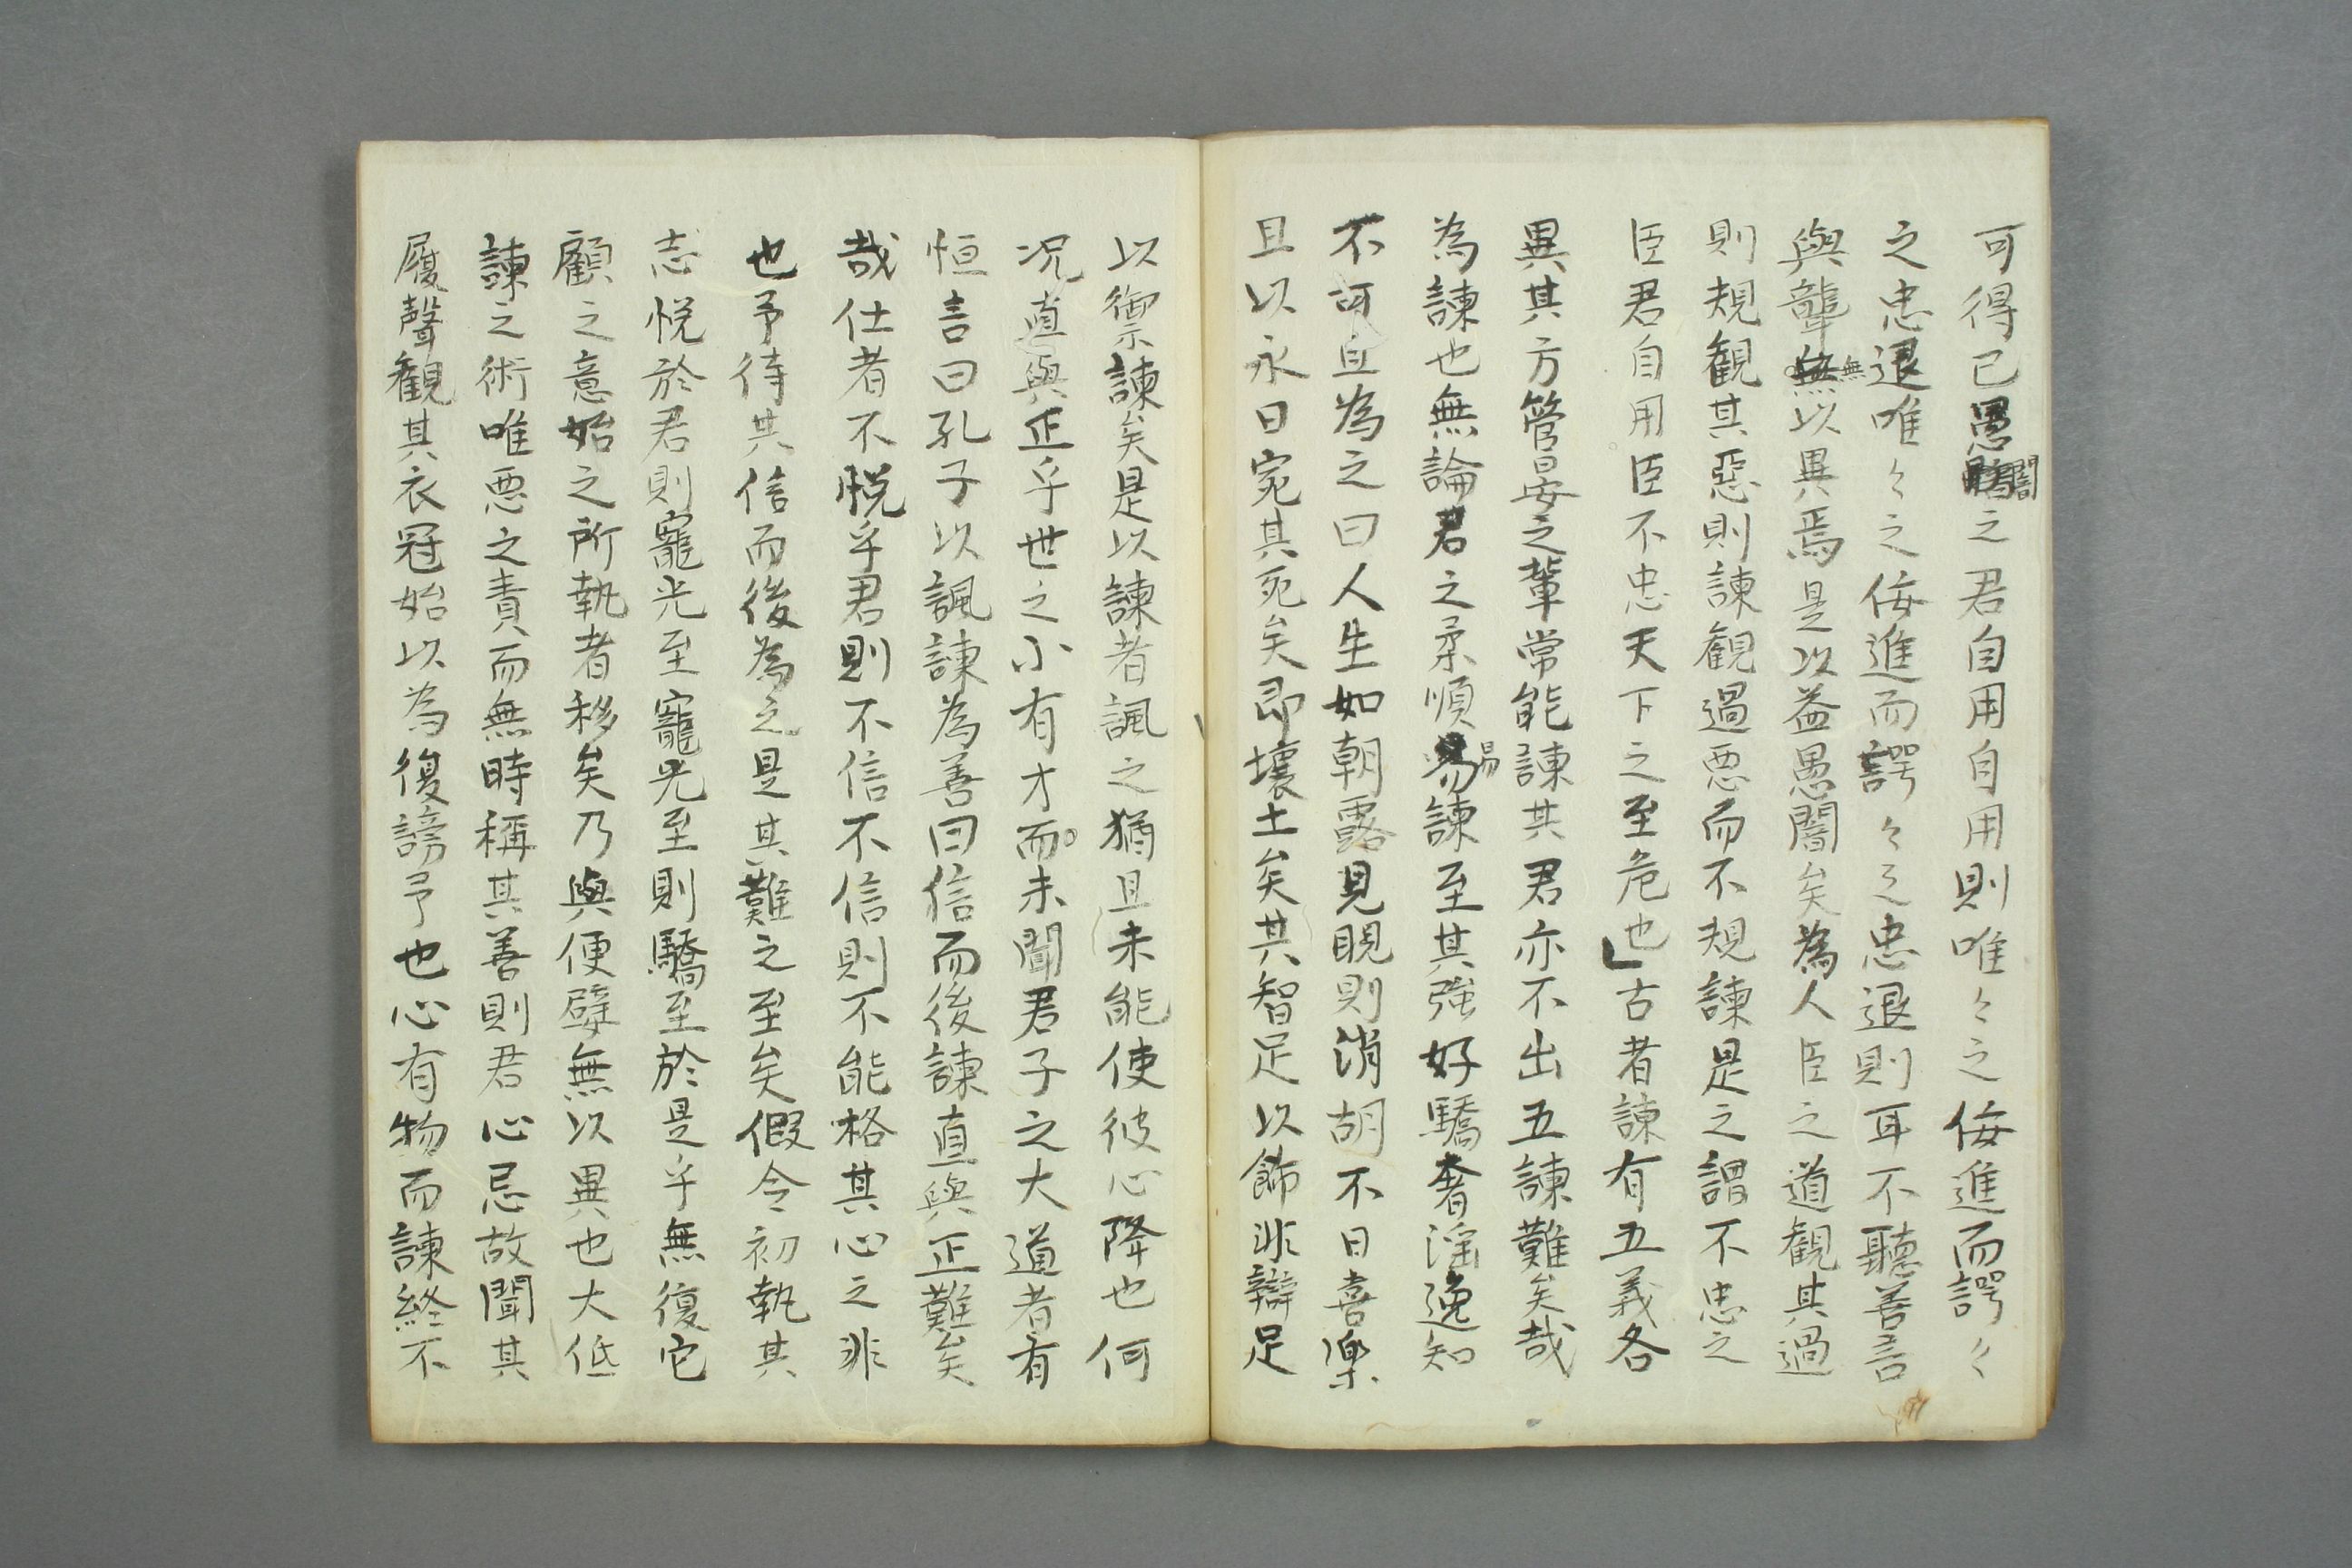 可得已愚闇之君自用自用則唯〻之佞進而諤〻
之忠退唯〻之佞進而諤〻之忠退則耳不聽善言
與聾無以異焉是以益愚闇矣為人臣之道觀其過
則規觀其惡則諫觀過悪而不規諫是之謂不忠之
臣君自用臣不忠天下之至危也」古者諫有五義各
異其方管晏之輩常能諫其君亦不出五諫難矣哉
為諫也無論君之柔順易諫至其強好驕奢淫逸知
不可且為之曰人生如朝露見晛則消胡不日喜樂
且以永日宛其死矣即壞土矣其智足以飾非辯足
以禦諫矣是以諫者諷之猶且未能使彼心降也何
况直與正乎世之小有才而未聞君子之大道者有
恒言曰孔子以諷諫為善曰信而後諫直與正難矣
哉仕者不悅乎君則不信不信則不能格其心之非
也予待其信而後為之是其難之至矣假令初執其
志悅於君則寵光至寵光至則驕至於是乎無復它
顧之意始之所執者移矣乃與便嬖無以異也大低
諫之術唯悪之責而無時稱其善則君心忌故聞其
履聲觀其衣冠始以為復謗予也心有物而諫終不